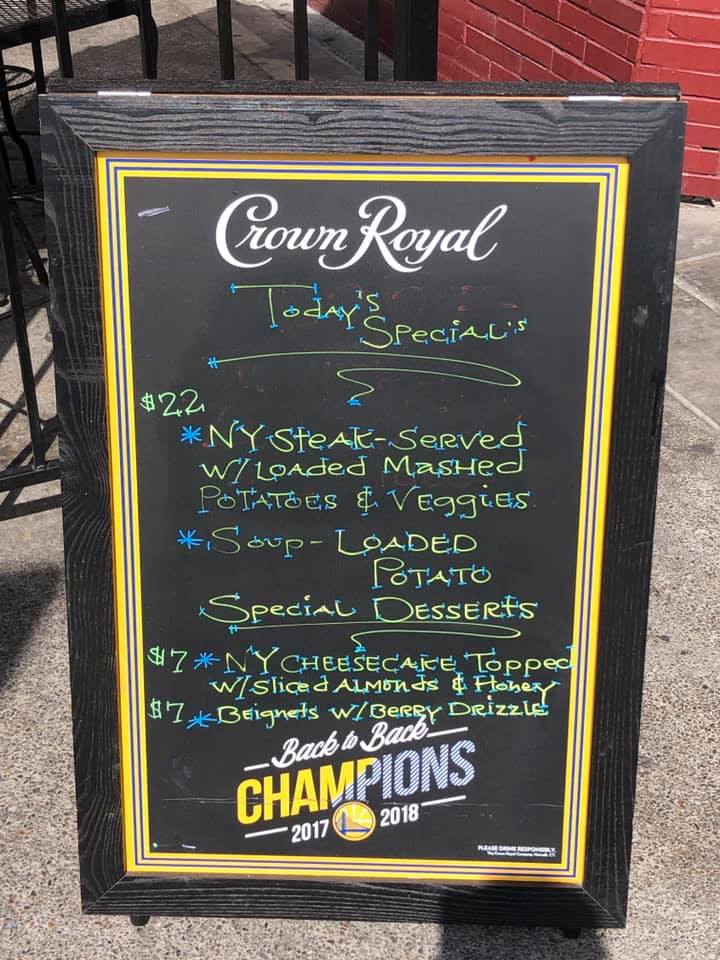 Crown Royal
Today's
Special's
$22
*NY Steak-Served
w/ Loaded Mashed
Potatoes & Veggies
*Soup- Loaded
Potato
Special Desserts
$7 *NY Cheesecake Topped
w/ Sliced Almonds & Honey
$7 *Beignets w/ Berry Drizzle
Back to Back
CHAMPIONS
2017 2018
PLEASE DRINK RESPONSIBLY.
The Crown Royal Company, Norwalk, CT.